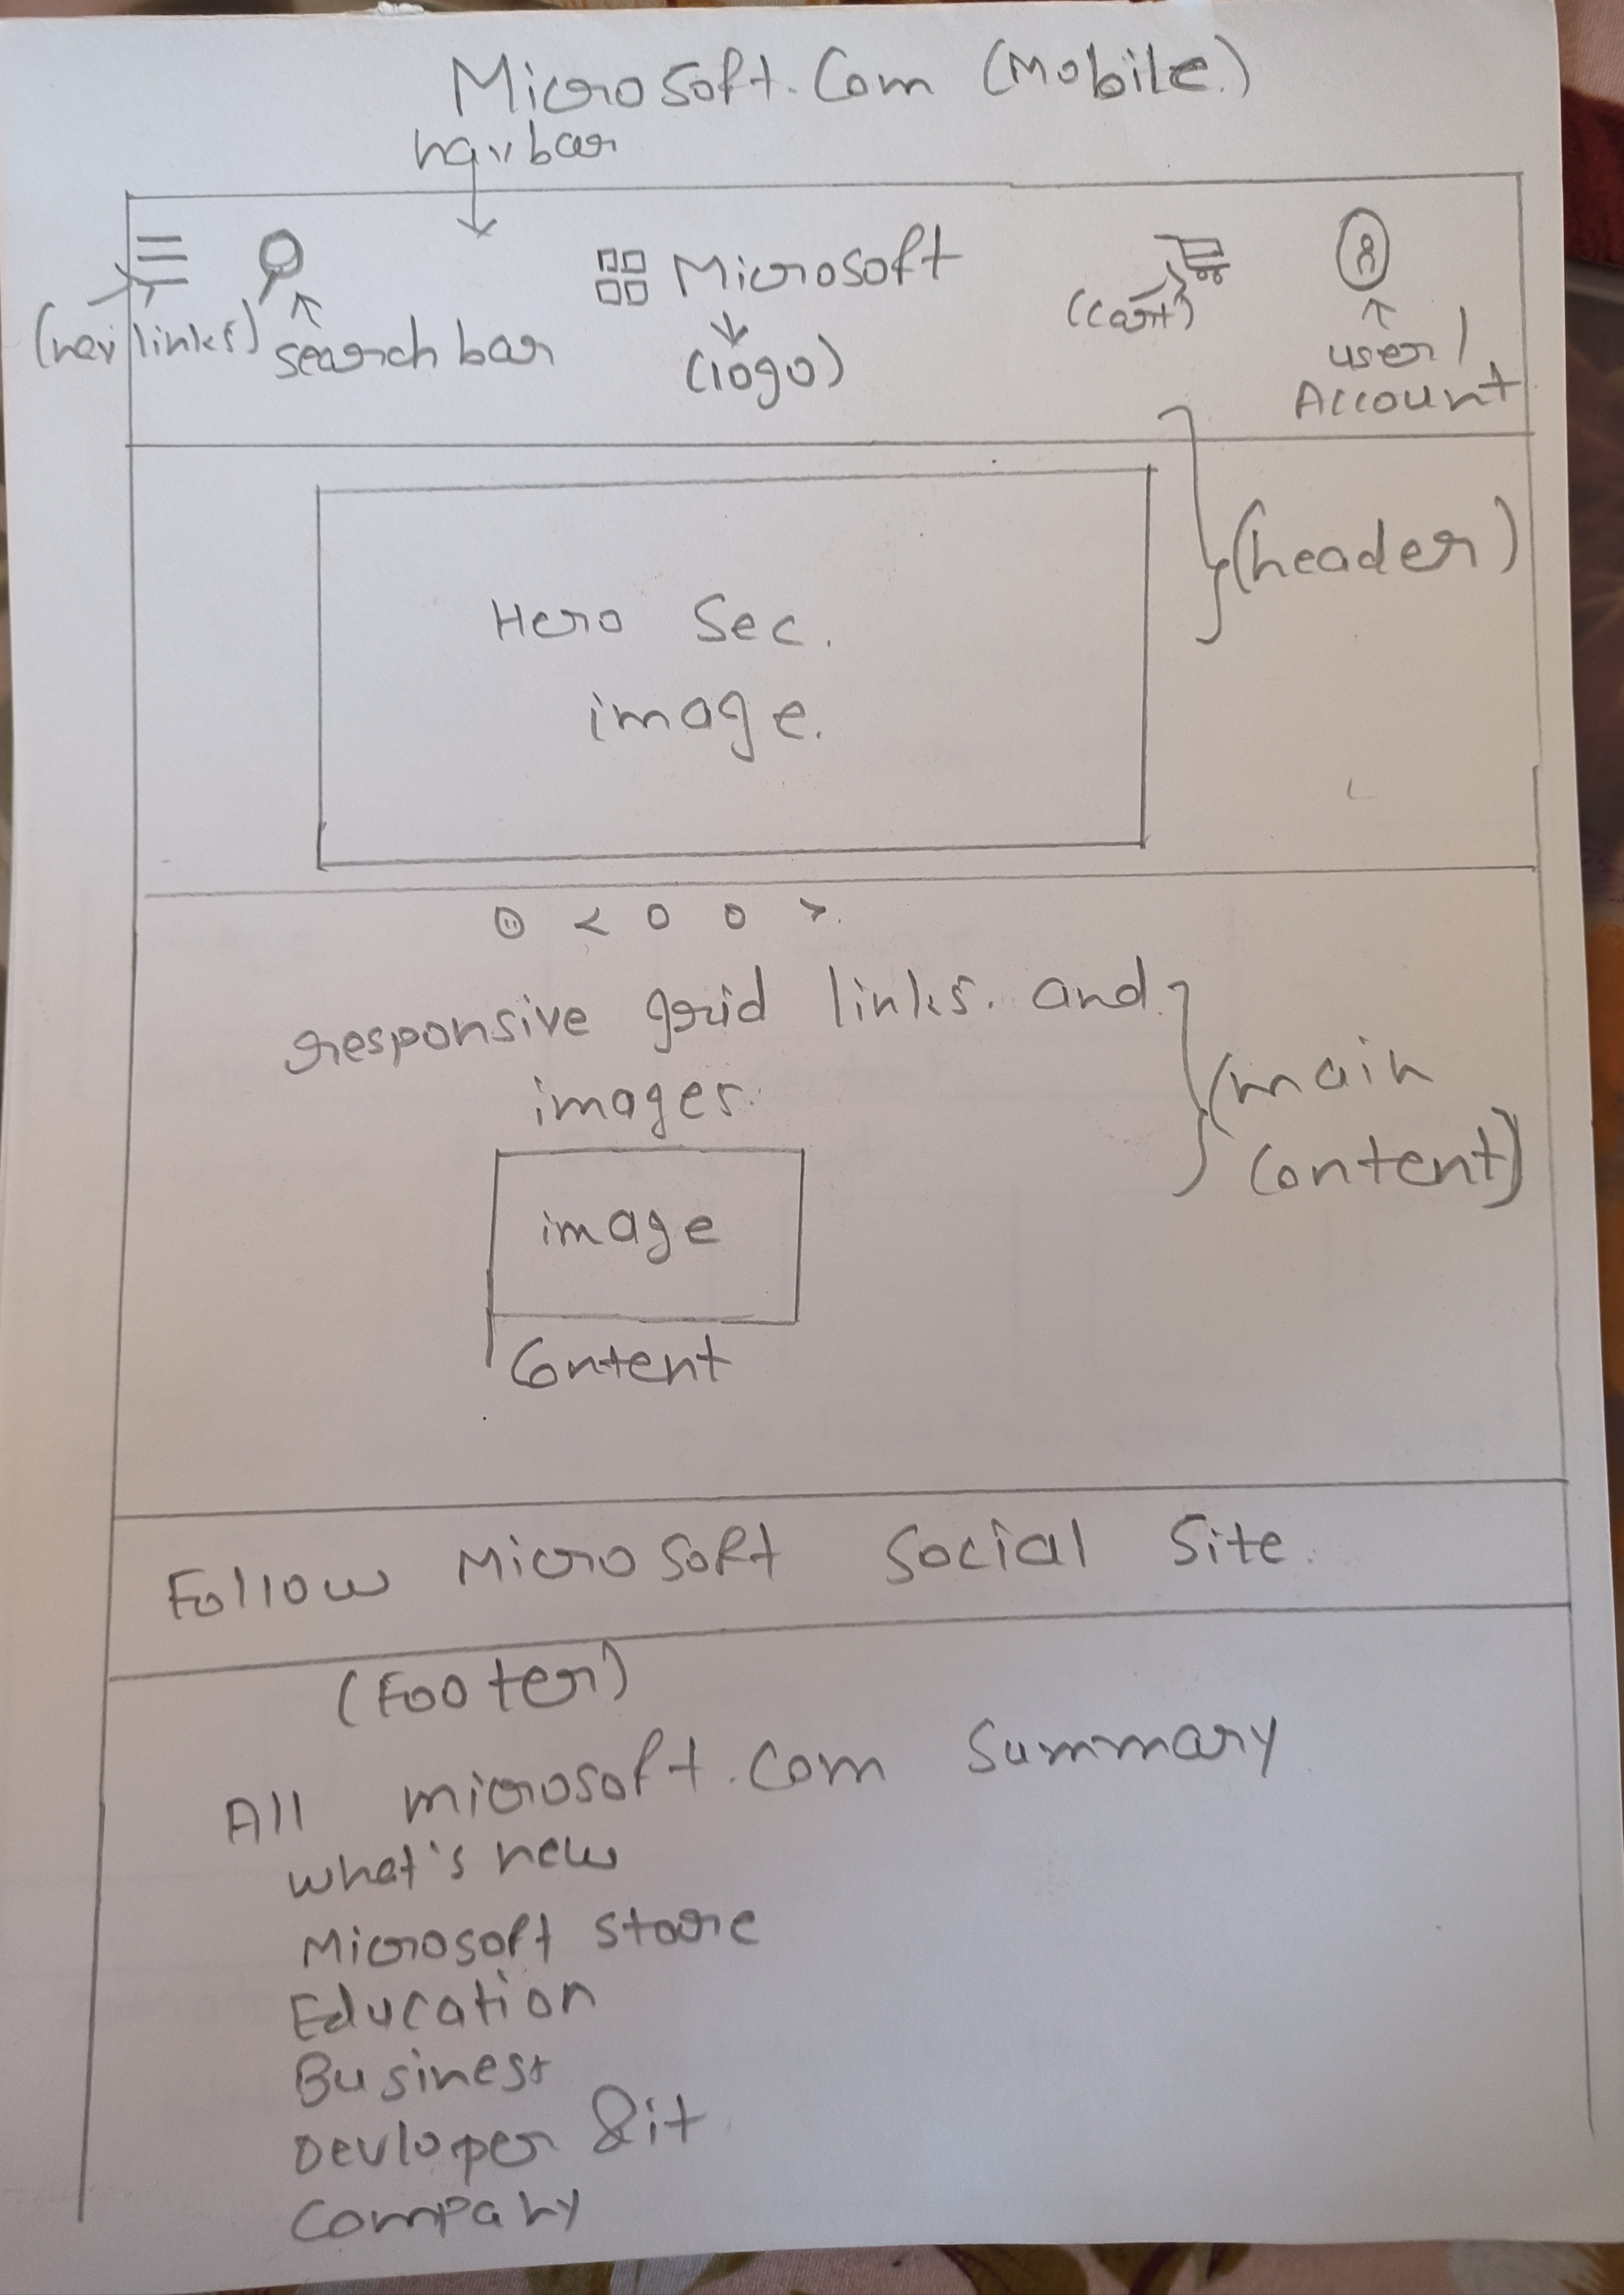 Microsoft.Com (Mobile.)
navbar
Microsoft
(nav links)
search bar
(logo)
(cart)
user/
Account
(header)
Hero Sec.
image.
responsive grid links. and
images.
(main
content)
image
Content
Follow Microsoft Social Site.
(Footer)
All microsoft.com Summary
what's new
Microsoft store
Education
Business
Devloper &it
Company